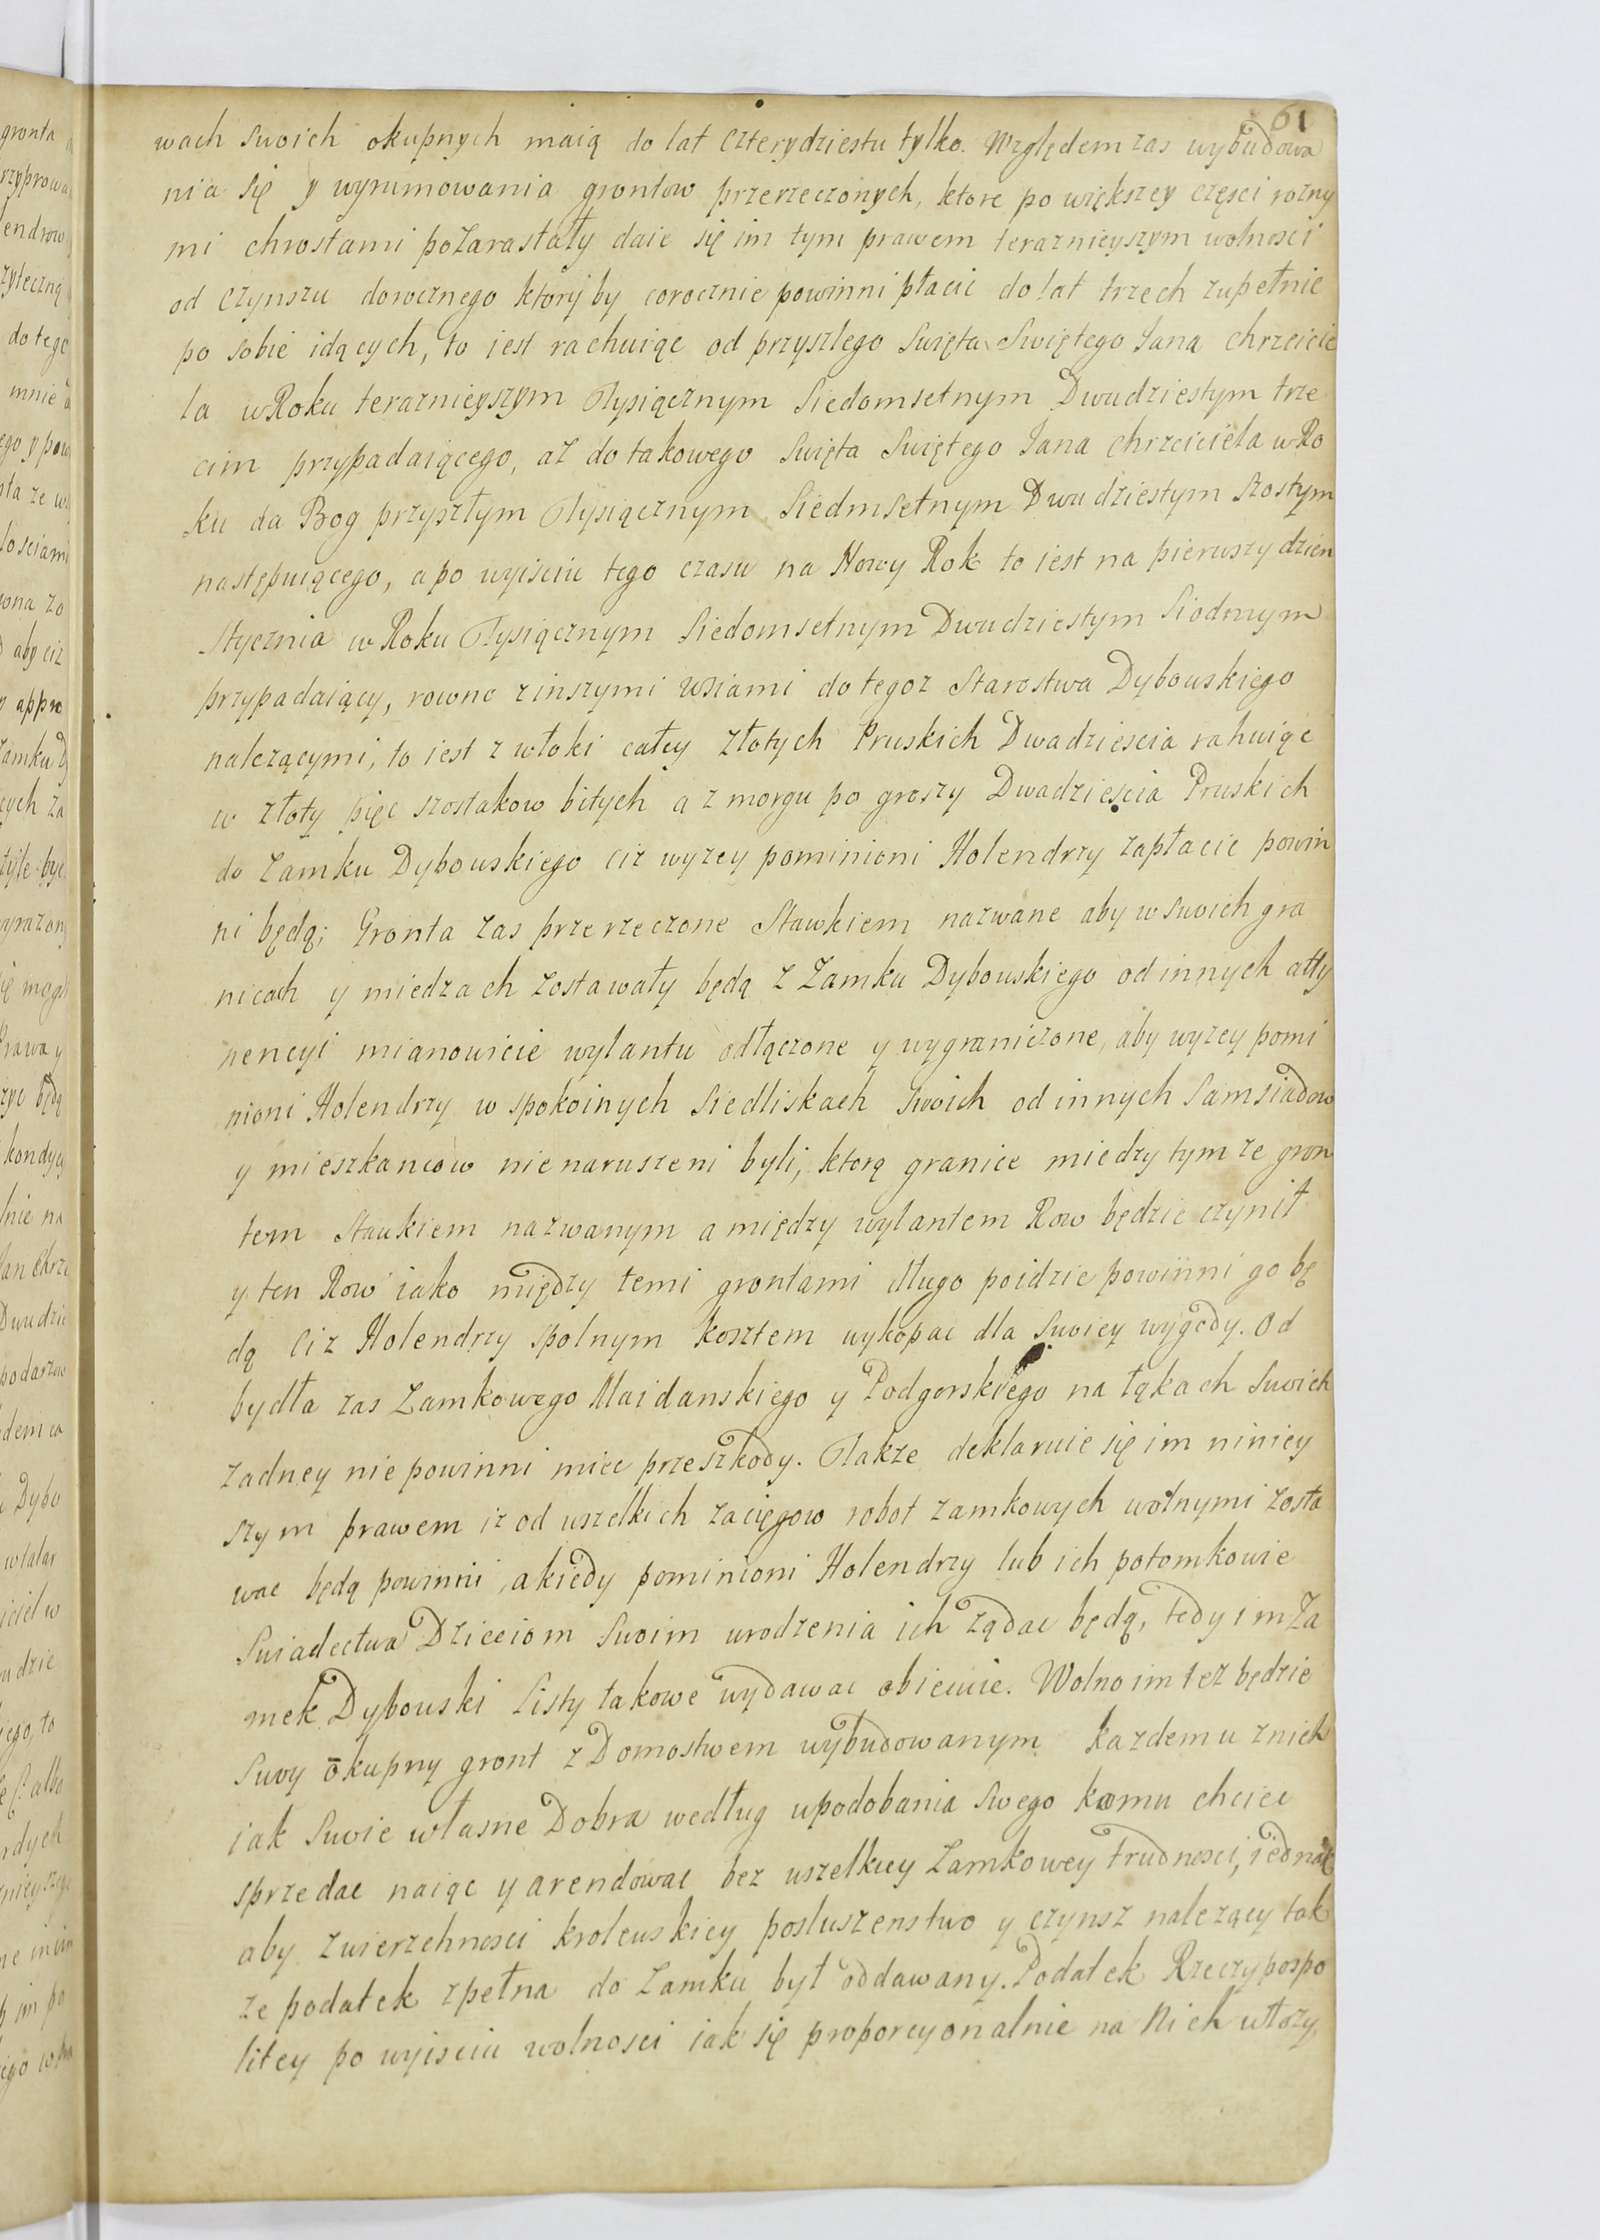 61
wach swoich okupnych maią do lat czterydziestu tylko. Względem zas wybudowa
nia się y wyrumowania grontow przerzeczonych, ktore po większey częsci rozny
mi chrostami pozarastały daie się im tym prawem terazniejszym wolnosci
od czynszu dorocznego ktory by corocznie powinni płacic do lat trzech zupełnie
po sobie idących, to iest rachuiąc od przyszlego Swięta Swiętego Jana chrzcicie
la w Roku terazniejszym Tysiącznym Siedomsetnym Dwudziestym trze
cim przypadaiącego, az do takowego Swięta Swiętego Jana chrzciciela w Ro
ku da Bog przyszłym Tysiącznym Siedmsetnym Dwudziestym szostym
następuiącego, a po wyisciu tego czasu na Nowy Rok to iest na pierwszy dzien
Stycznia w Roku Tysiącznym Siedomsetnym Dwudziestym Siodmym
przypadaiący, rowno zinszymi wsiami do tegoz Starostwa Dybowskiego
nalezącymi, to iest z włoki całey złotych Pruskich Dwadziescia rahuiąc
w złoty pięc szostakow bitych a z morgu po groszy Dwadziescia Pruskich
do Zamku Dybowskiego ciz wyzey pominioni Holendrzy zapłacic powin
ni będą; Gronta zas przerzeczone Stawkiem nazwane aby w swoich gra
nicach y miedzach zostawały będą z Zamku Dybowskiego od innych atty
nencyi mianowicie wylantu odłączone y wygraniczone, aby wyzey pomi
nioni Holendrzy w spokoinych Siedliskach swoich od innych Samsiadow
y mieszkancow nienaruszeni byli, ktorą granice miedzy tym ze gron
tem Stawkiem nazwanym a między wylantem Row będzie czynił
y ten Row iako między temi grontami długo poidzie powinni go bę
dą ciz Holendrzy spolnym kosztem wykopac dla swoiey wygody. Od
bydła zas Zamkowego Maidanskiego y Podgorskiego na łąkach swoich
zadney nie powinni miec przeszkody. Takze deklaruie się im niniey
szym prawem iz od wszelkich zacięgow robot zamkowych wolnymi zosta
wac będą powinni, a kiedy pominioni Holendrzy lub ich potomkowie
Swiadectwa Dzieciom Swoim urodzenia ich ządac będą, tedy im Za
mek Dybowski Listy takowe wydawac obiecuie. Wolno im tez będzie
Swoy okupny gront z Domostwem wybudowanym kazdemu znich
iak Swoie własne Dobra według upodobania swego komu chciec
sprzedac naiąc y arendowac bez wszelkiey Zamkowey trudnosci, iednak
aby zwierzchnosci krolewskiey posluszenstwo y czynsz nalezący tak
ze podatek zpełna do Zamku był oddawany. Podatek Rzeczypospo
litey po wyisciu wolnosci iak się proporcyonalnie na Nich włozy,